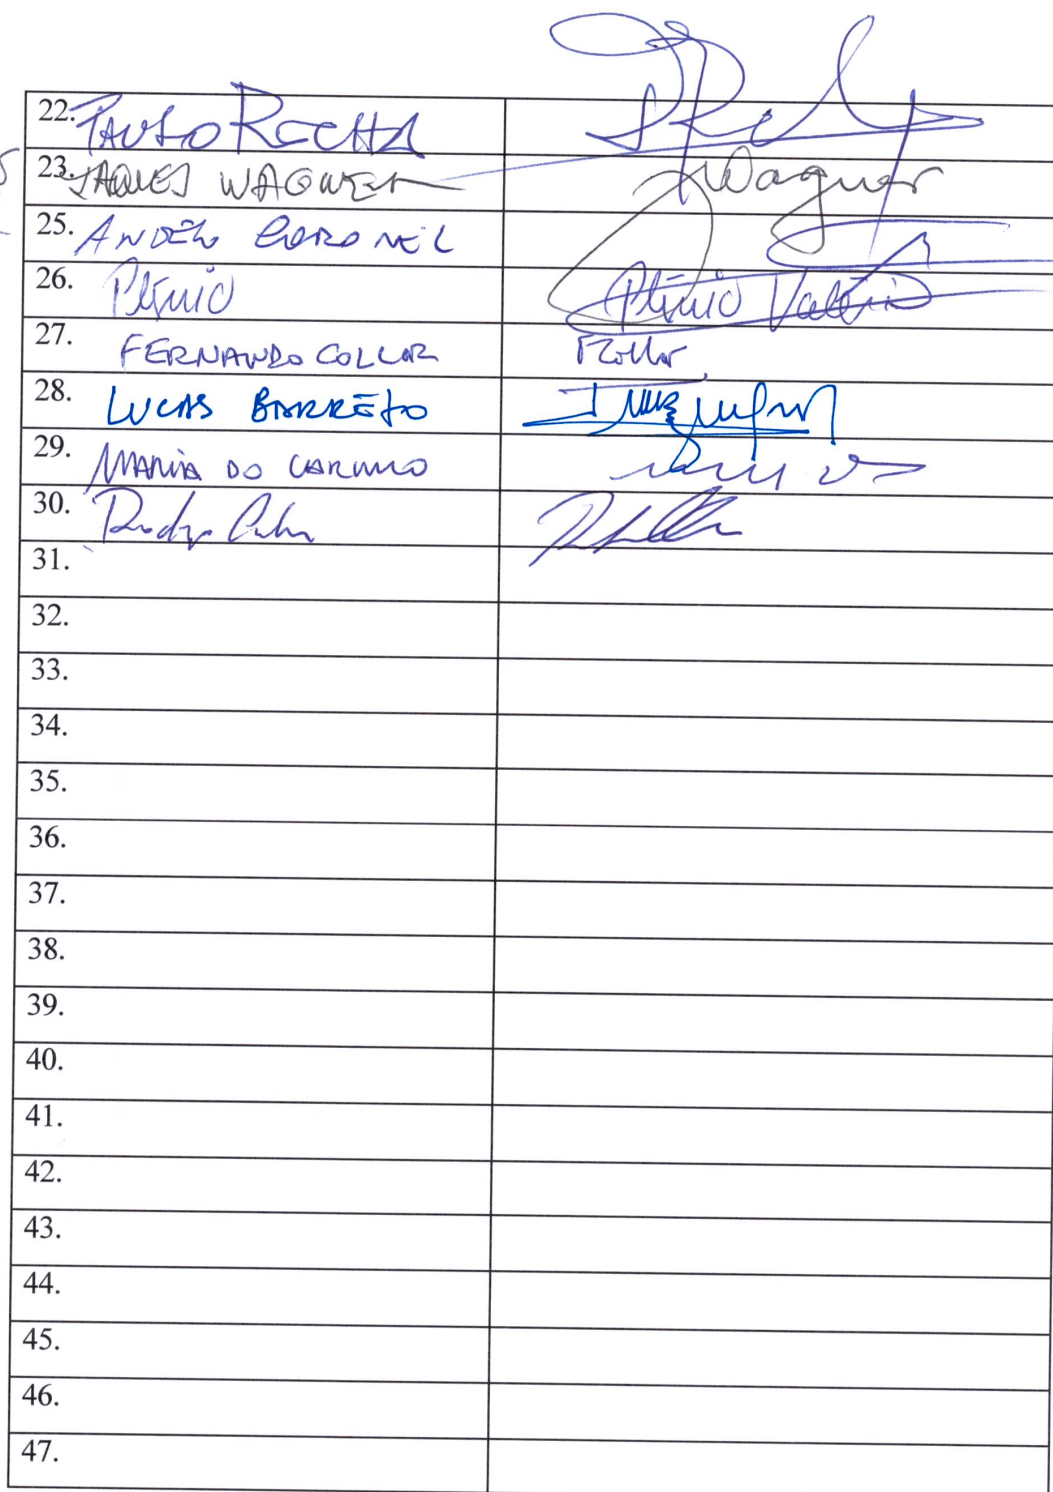 22. PAULO ROCHA
23. JAQUES WAGNER JWagner
25. ANGELO CORONEL
26. Plínio Plínio Valério
27. FERNANDO COLLOR FCollor
28. LUCAS BARRETO
29. MARIA DO CARMO
30.
31.
32.
33.
34.
35.
36.
37.
38.
39.
40.
41.
42.
43.
44.
45.
46.
47.